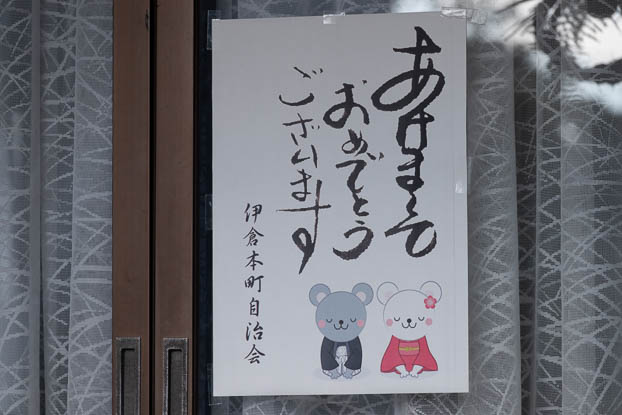 あけまして
おめでとう
ございます
伊倉本町自治会